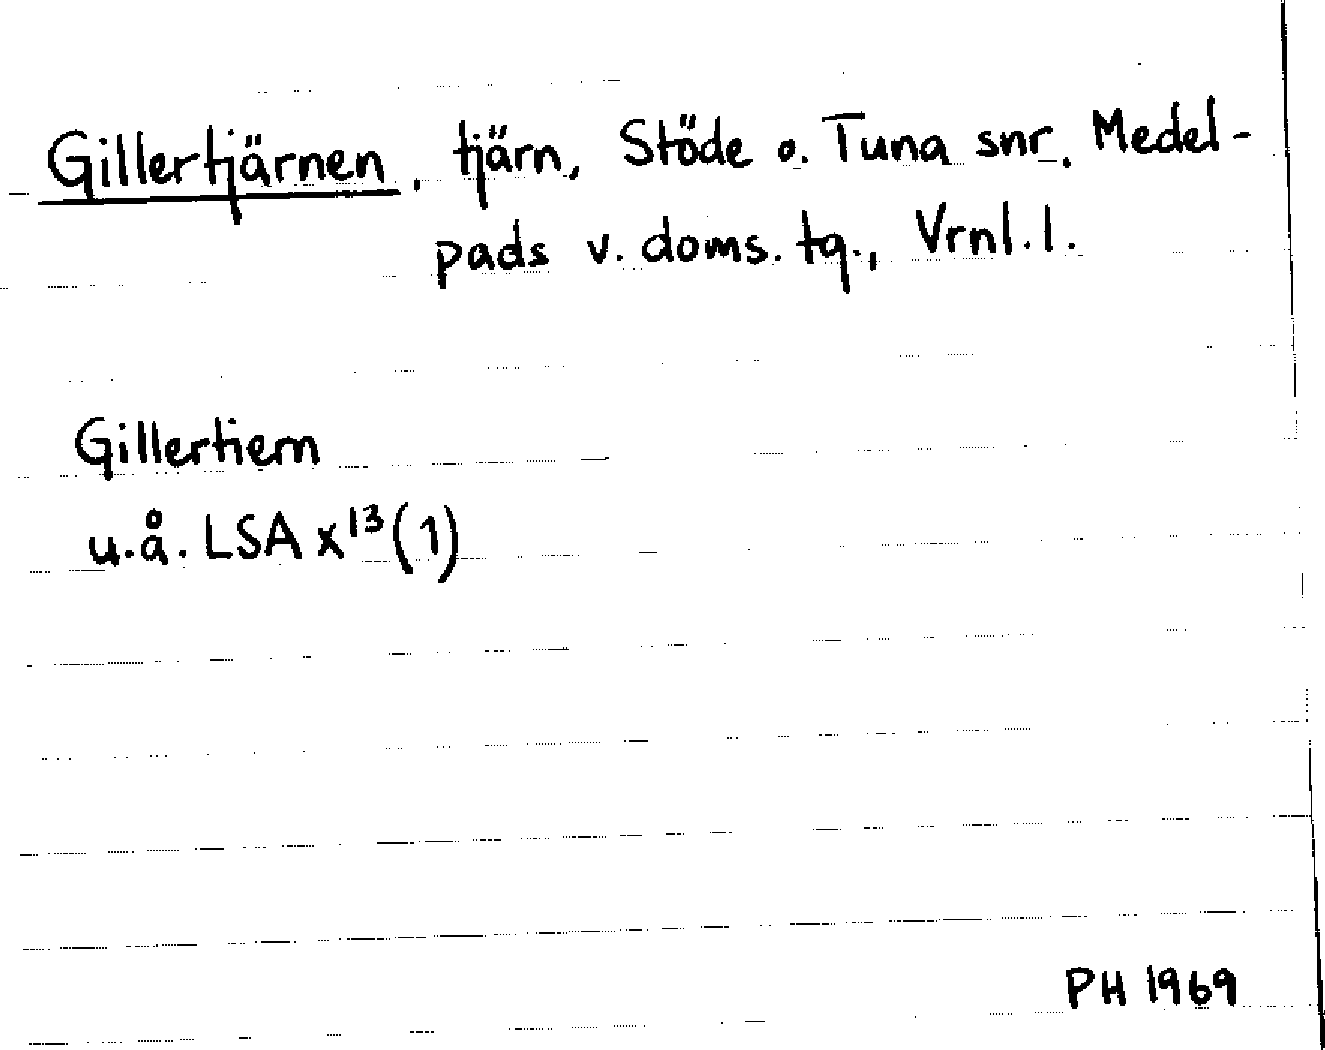 Gillertjärnen, tjärn, Stöde o. Tuna snr, Medel-
pads v. doms. tg., Vrnl. l.
Gillertiern
u.å. LSA X¹³(1)
PH 1969